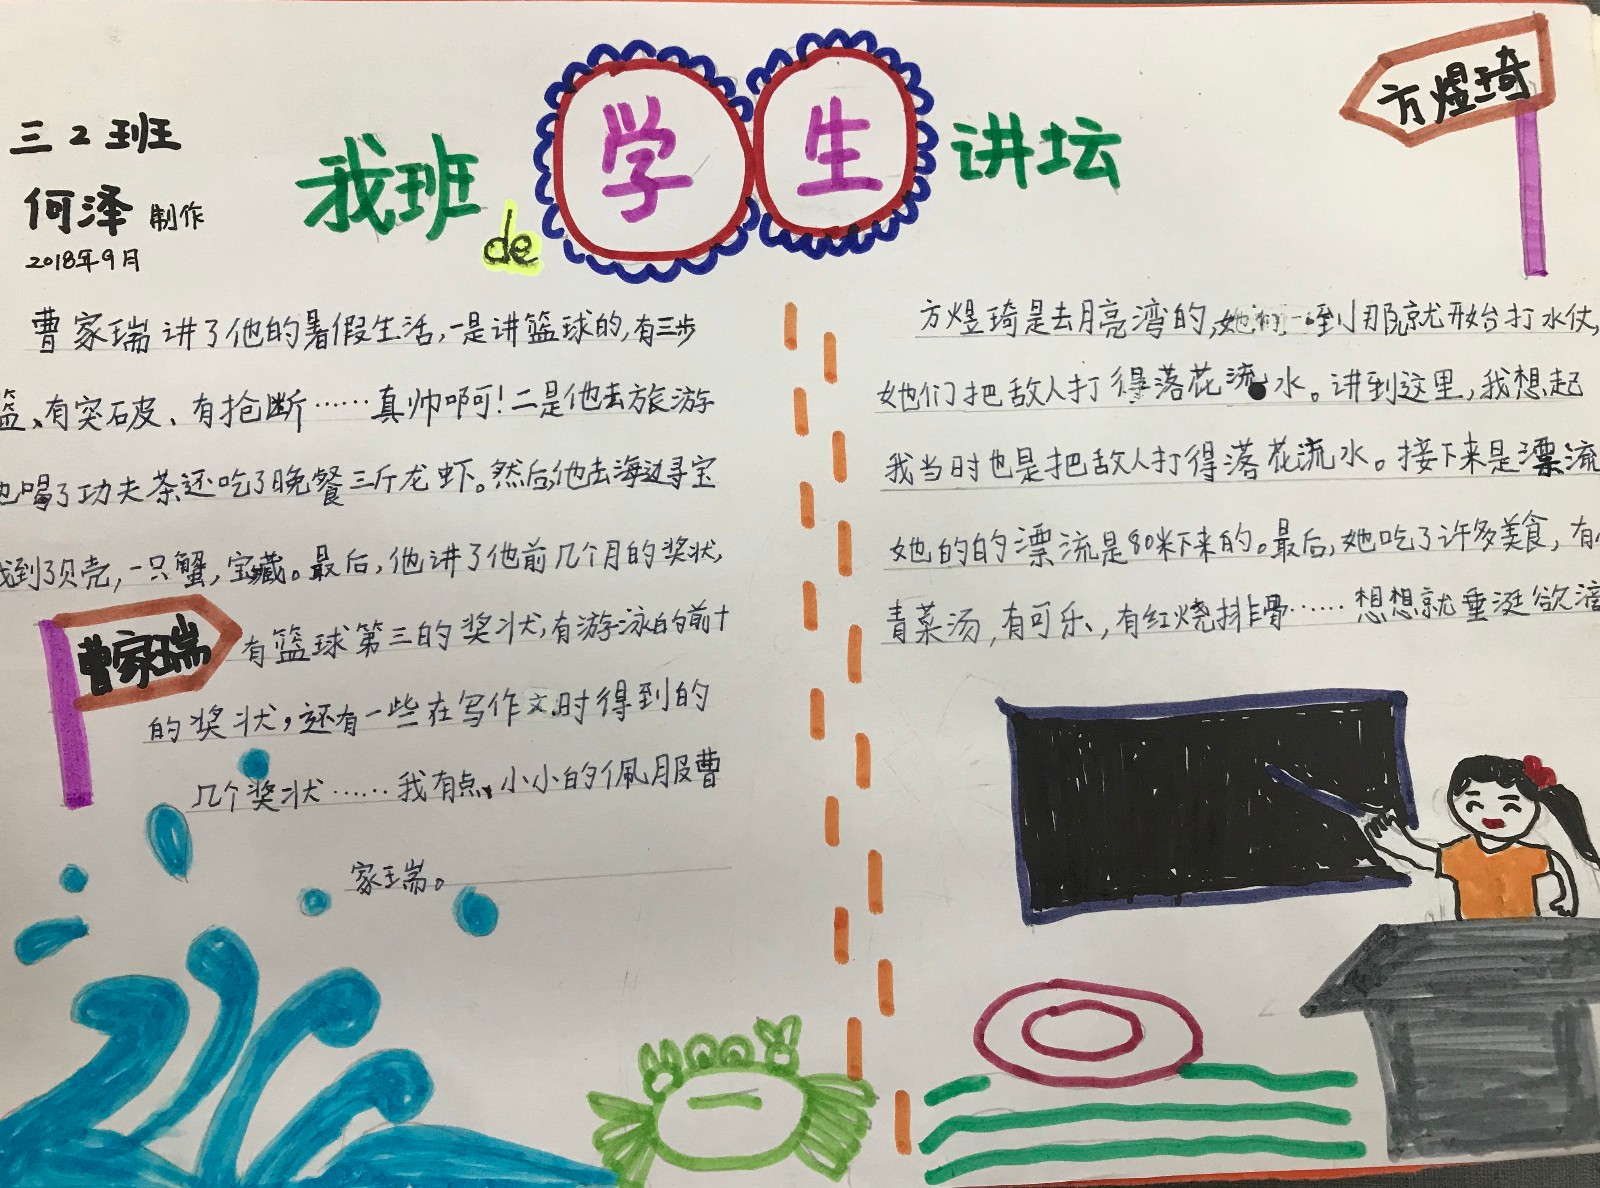 三2班
何泽 制作
2018年9月
我班de学生讲坛
方煜琦
曹家瑞讲了他的暑假生活,一是讲篮球的,有三步
篮、有突破、有抢断……真帅啊!二是他去旅游
他喝了功夫茶还吃了晚餐三斤龙虾。然后他去海边寻宝
找到了贝壳,一只蟹,宝藏。最后,他讲了他前几个月的奖状,
曹家瑞
有篮球第三的奖状,有游泳的前十
的奖状,还有一些在写作文时得到的
几个奖状……我有点、小小的佩服曹
家瑞。
方煜琦是去月亮湾的,她一到那就开始打水仗,
她们把敌人打得落花流水。讲到这里,我想起
我当时也是把敌人打得落花流水。接下来是漂流
她的的漂流是80米下来的。最后,她吃了许多美食,有
青菜汤,有可乐,有红烧排骨……想想就垂涎欲滴